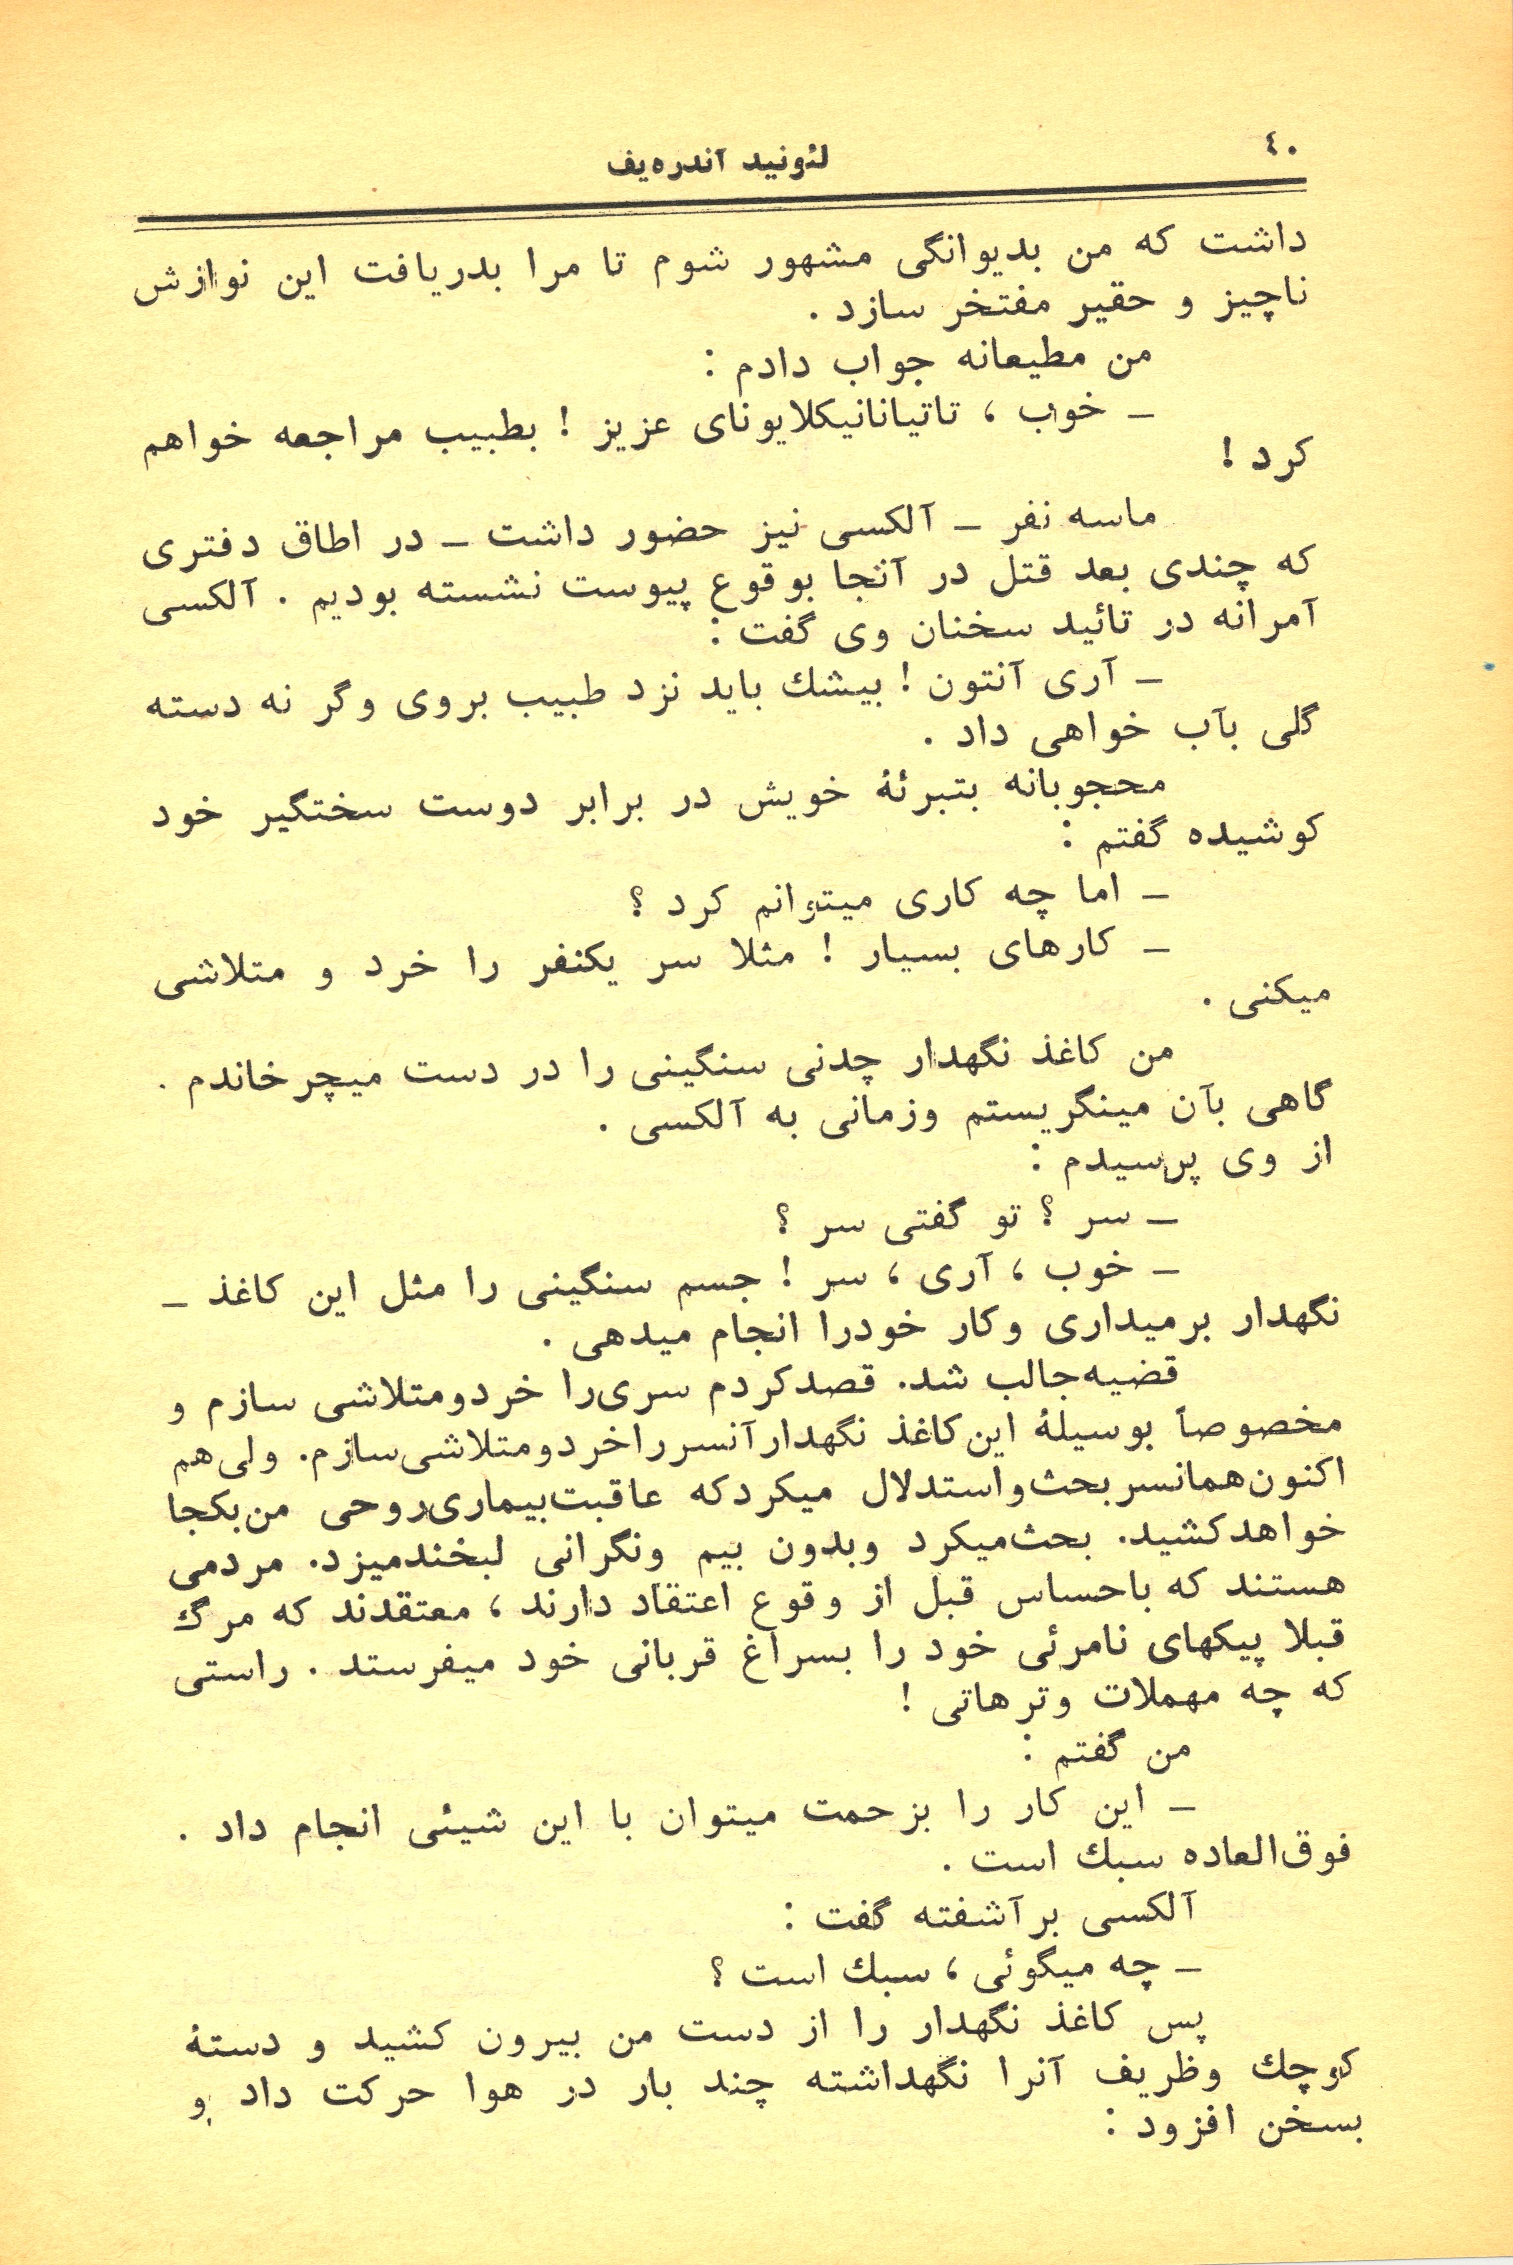 ۴۰
لئونید آندره‌یف
داشت که من بدیوانگی مشهور شوم تا مرا بدریافت این نوازش
ناچیز و حقیر مفتخر سازد .
من مطیعانه جواب دادم :
ـ خوب ، تاتیانانیکلایونای عزیز ! بطبیب مراجعه خواهم
کرد !
ماسه نفر ـ آلکسی نیز حضور داشت ـ در اطاق دفتری
که چندی بعد قتل در آنجا بوقوع پیوست نشسته بودیم . آلکسی
آمرانه در تائید سخنان وی گفت :
ـ آری آنتون ! بیشك باید نزد طبیب بروی وگر نه دسته
گلی بآب خواهی داد .
محجوبانه بتبرئهٔ خویش در برابر دوست سختگیر خود
کوشیده گفتم :
ـ اما چه کاری میتوانم کرد ؟
ـ کارهای بسیار ! مثلا سر یکنفر را خرد و متلاشی
میکنی .
من کاغذ نگهدار چدنی سنگینی را در دست میچرخاندم .
گاهی بآن مینگریستم وزمانی به آلکسی .
از وی پرسیدم :
ـ سر ؟ تو گفتی سر ؟
ـ خوب ، آری ، سر ! جسم سنگینی را مثل این کاغذ ـ
نگهدار برمیداری وکار خودرا انجام میدهی .
قضیه‌جالب شد. قصدکردم سری‌را خردومتلاشی سازم و
مخصوصاً بوسیلهٔ این‌کاغذ نگهدارآنسرراخردومتلاشی‌سازم. ولی‌هم
اکنون‌همانسربحث‌واستدلال میکردکه عاقبت‌بیماری‌روحی من‌بکجا
خواهدکشید. بحث‌میکرد وبدون بیم ونگرانی لبخندمیزد. مردمی
هستند که باحساس قبل از وقوع اعتقاد دارند ، معتقدند که مرگ
قبلا پیکهای نامرئی خود را بسراغ قربانی خود میفرستد . راستی
که چه مهملات وترهاتی !
من گفتم :
ـ این کار را بزحمت میتوان با این شیئی انجام داد .
فوق‌العاده سبك است .
آلکسی برآشفته گفت :
ـ چه میگوئی ، سبك است ؟
پس کاغذ نگهدار را از دست من بیرون کشید و دستهٔ
کوچك وظریف آنرا نگهداشته چند بار در هوا حرکت داد و
بسخن افزود :